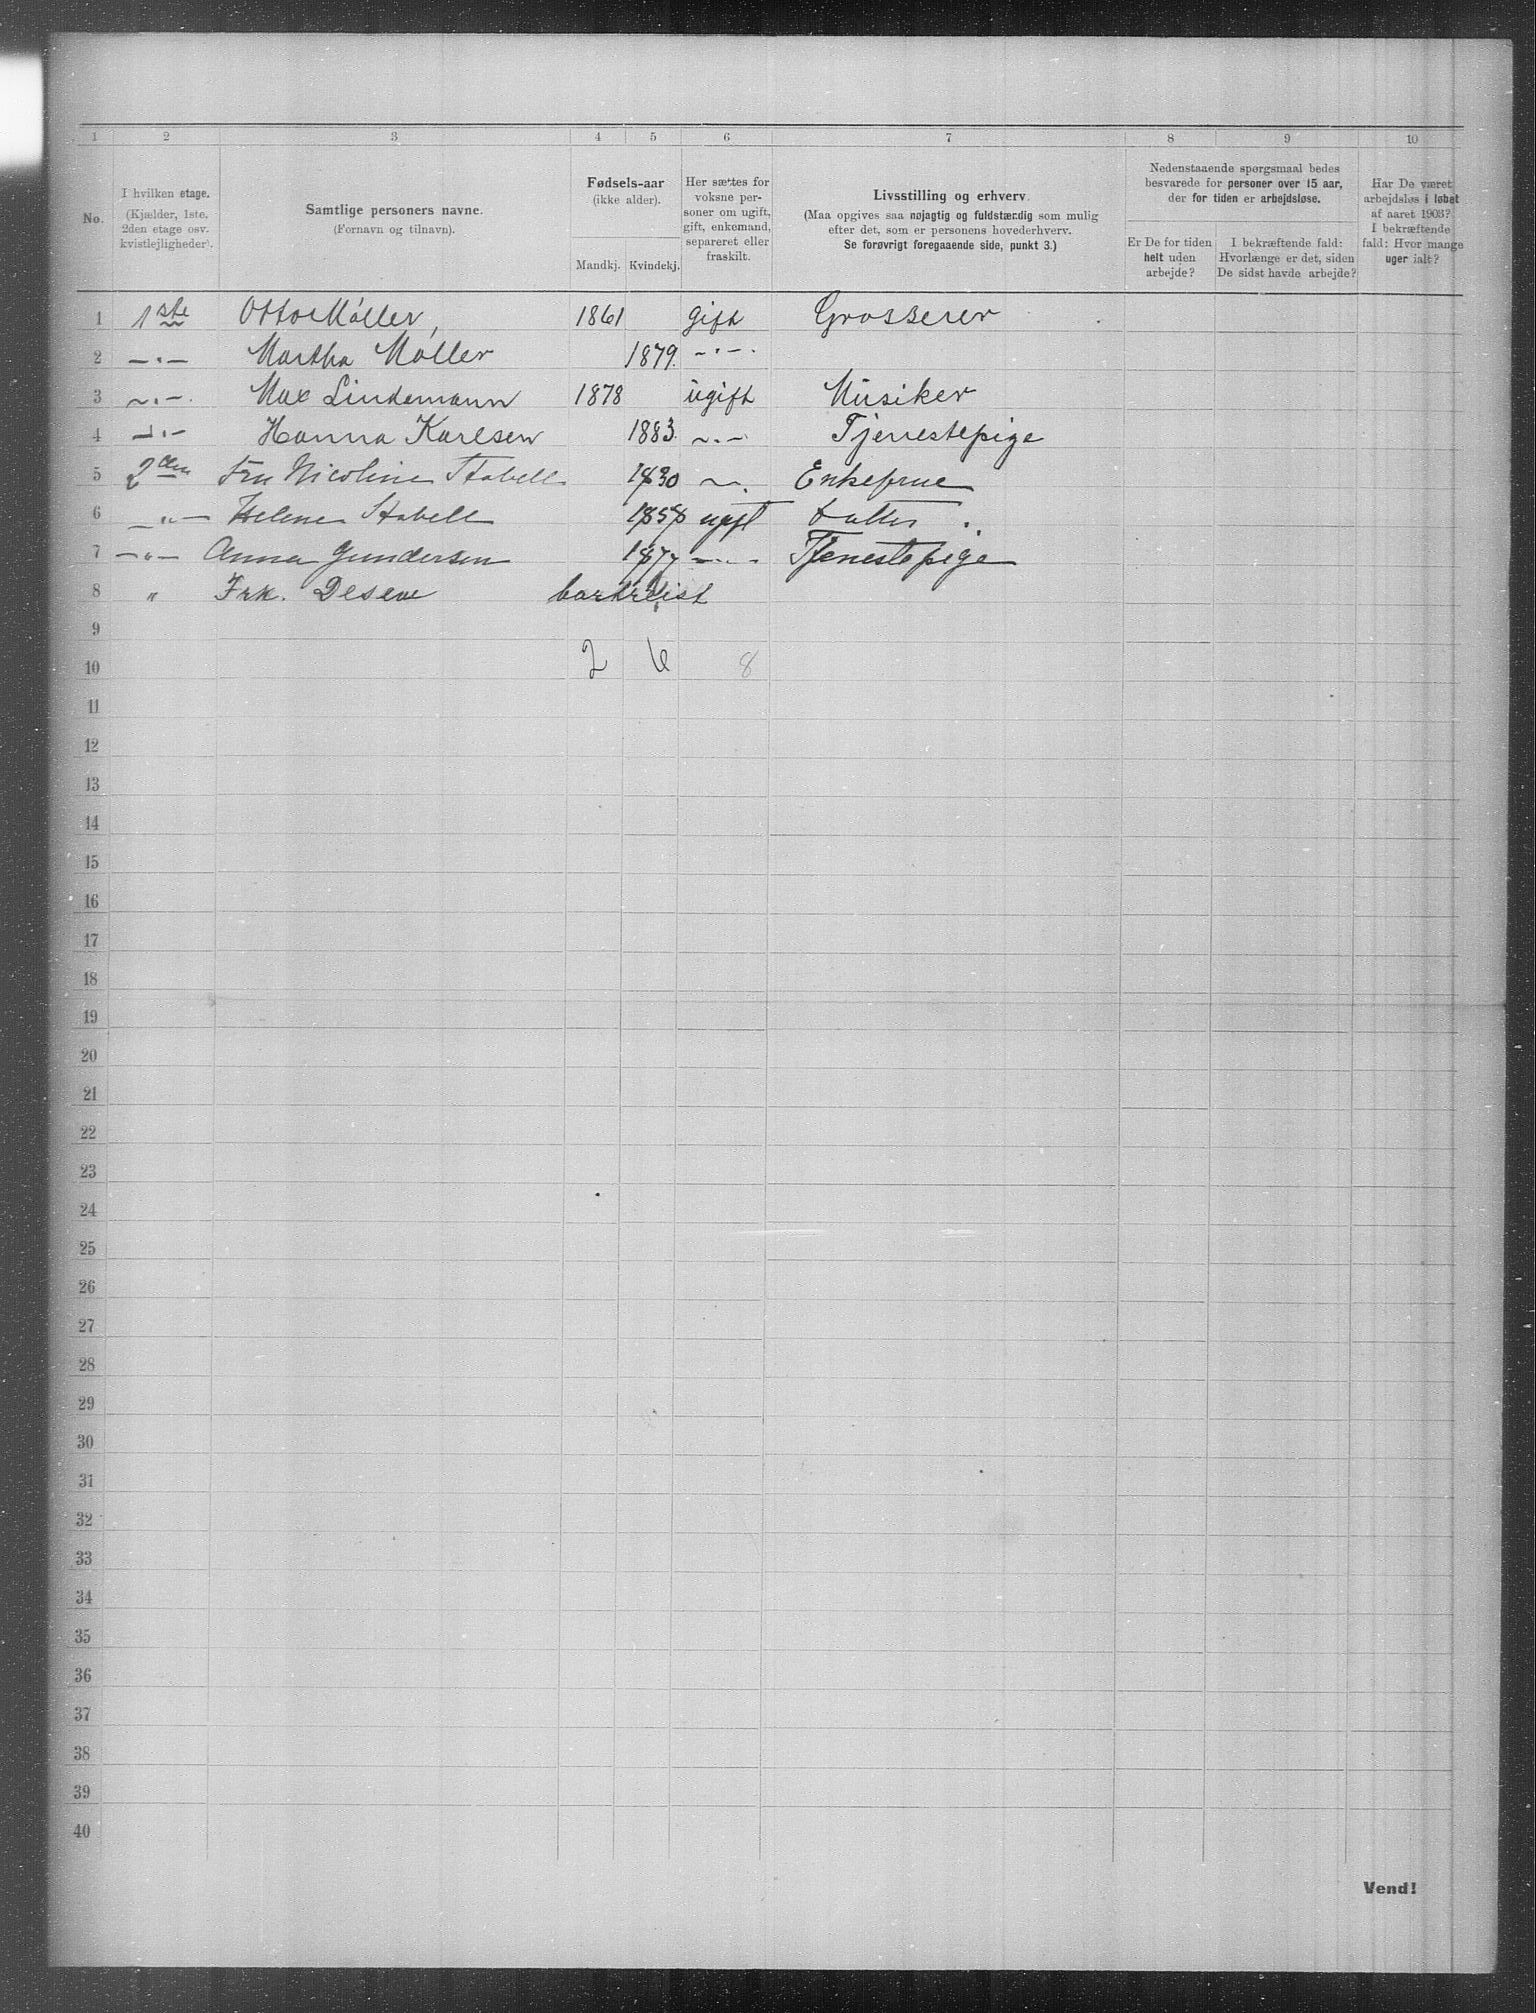 1 2 3 4 5 6 7 8 9 10
No.
I hvilken etage.
(Kjælder, 1ste,
2den etage osv.
kvistlejligheder).
Samtlige personers navne.
(Fornavn og tilnavn).
Fødsels-aar
(ikke alder).
Mandkj. Kvindekj.
Her sættes for
voksne per-
soner om ugift,
gift, enkemand,
separeret eller
fraskilt.
Livsstilling og erhverv.
(Maa opgives saa nøjagtig og fuldstændig som mulig
efter det, som er personens hovederhverv.
Se forøvrigt foregaaende side, punkt 3.)
Nedenstaaende spørgsmaal bedes
besvarede for personer over 15 aar,
der for tiden er arbejdsløse.
Er De for tiden
helt uden
arbejde?
I bekræftende fald:
Hvorlænge er det, siden
De sidst havde arbejde?
Har De været
arbejdsløs i løbet
af aaret 1903?
I bekræftende
fald: Hvor mange
uger ialt?
1 1ste Otto Møller, 1861 gift Grosserer
2 —"— Martha Møller 1879. —"—
3 —"— Max Lindemann 1878 ugift Musiker
4 —"— Hanna Karlsen 1883. —"— Tjenestepige
5 2den Fru Nicoline Stabell 1830 —"— Enkefrue
6 —"— Helene Stabell 1858 ugift datter
7 —"— Anna Gundersen 1877 —"— Tjenestepige
8 " Frk. bortreist
9
10 2 6 8
11
12
13
14
15
16
17
18
19
20
21
22
23
24
25
26
27
28
29
30
31
32
33
34
35
36
37
38
39
40
Vend!